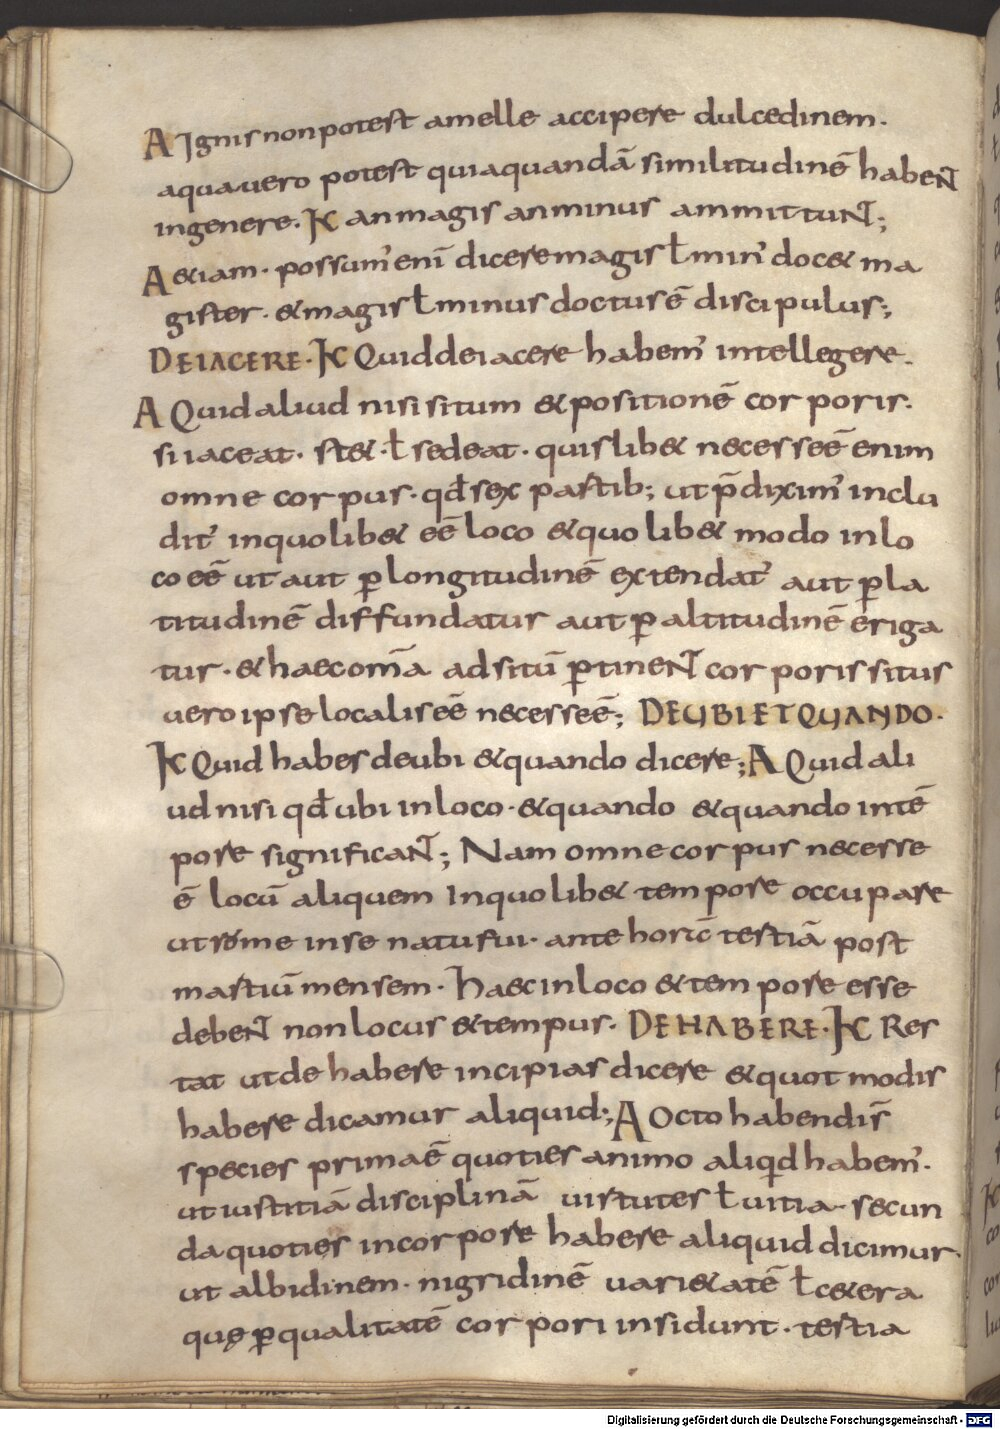 A Ignis non potest amelle accipere dulcedinem.
aqua uero potest quia quandā similitudinē habent
in genere. K an magis an minus ammittunt;
A &iam. possum' enī dicere magis ł min' doc& ma
gister. & magis ł minus doctus ē discipulus;
DE IACERE. K Quid de iacere habem' intellegere.
A Quid aliud nisi situm & positionē corporis.
si iaceat. st& . ł sedeat. quislib& necesse ē enim
omne corpus. qđ sex partib; ut p̄diximꝰ inclu
dit' in quolib& eē loco & quolib& modo in lo
co eē ut aut ꝑ longitudinē extendat' aut ꝑ la
titudinē diffundatur aut ꝑ altitudinē eriga
tur. & haec om̄a ad sitū ꝑtinent corporis situs
uero ipse localis eē necesse ē; DE UBI ET QUANDO.
K Quid habes de ubi & quando dicere; A Quid ali
ud nisi qđ ubi in loco. & quando & quando in tē
pore significant; Nam omne corpus necesse
ē locū aliquem In quolib& tempore occupare
ut romę in se natu fui. ante horc̄ tertiā post
martiū mensem. Haec in loco & tempore esse
debent non locus & tempus. DE HABERE. K Res
tat ut de habere incipias dicere & quot modis
habere dicamur aliquid; A Octo habendi s̄
species prima ē quoties animo aliqid habem'.
ut iustitiā disciplinā uirtutes ł uitia. secun
da quoties in corpore habere aliquid dicimur.
ut albidinem. nigridinē uari&atē ł c&era
quę ꝑ qualitatē corpori insidunt. tertia
Digitalisierung gefördert durch die Deutsche Forschungsgemeinschaft - DFG